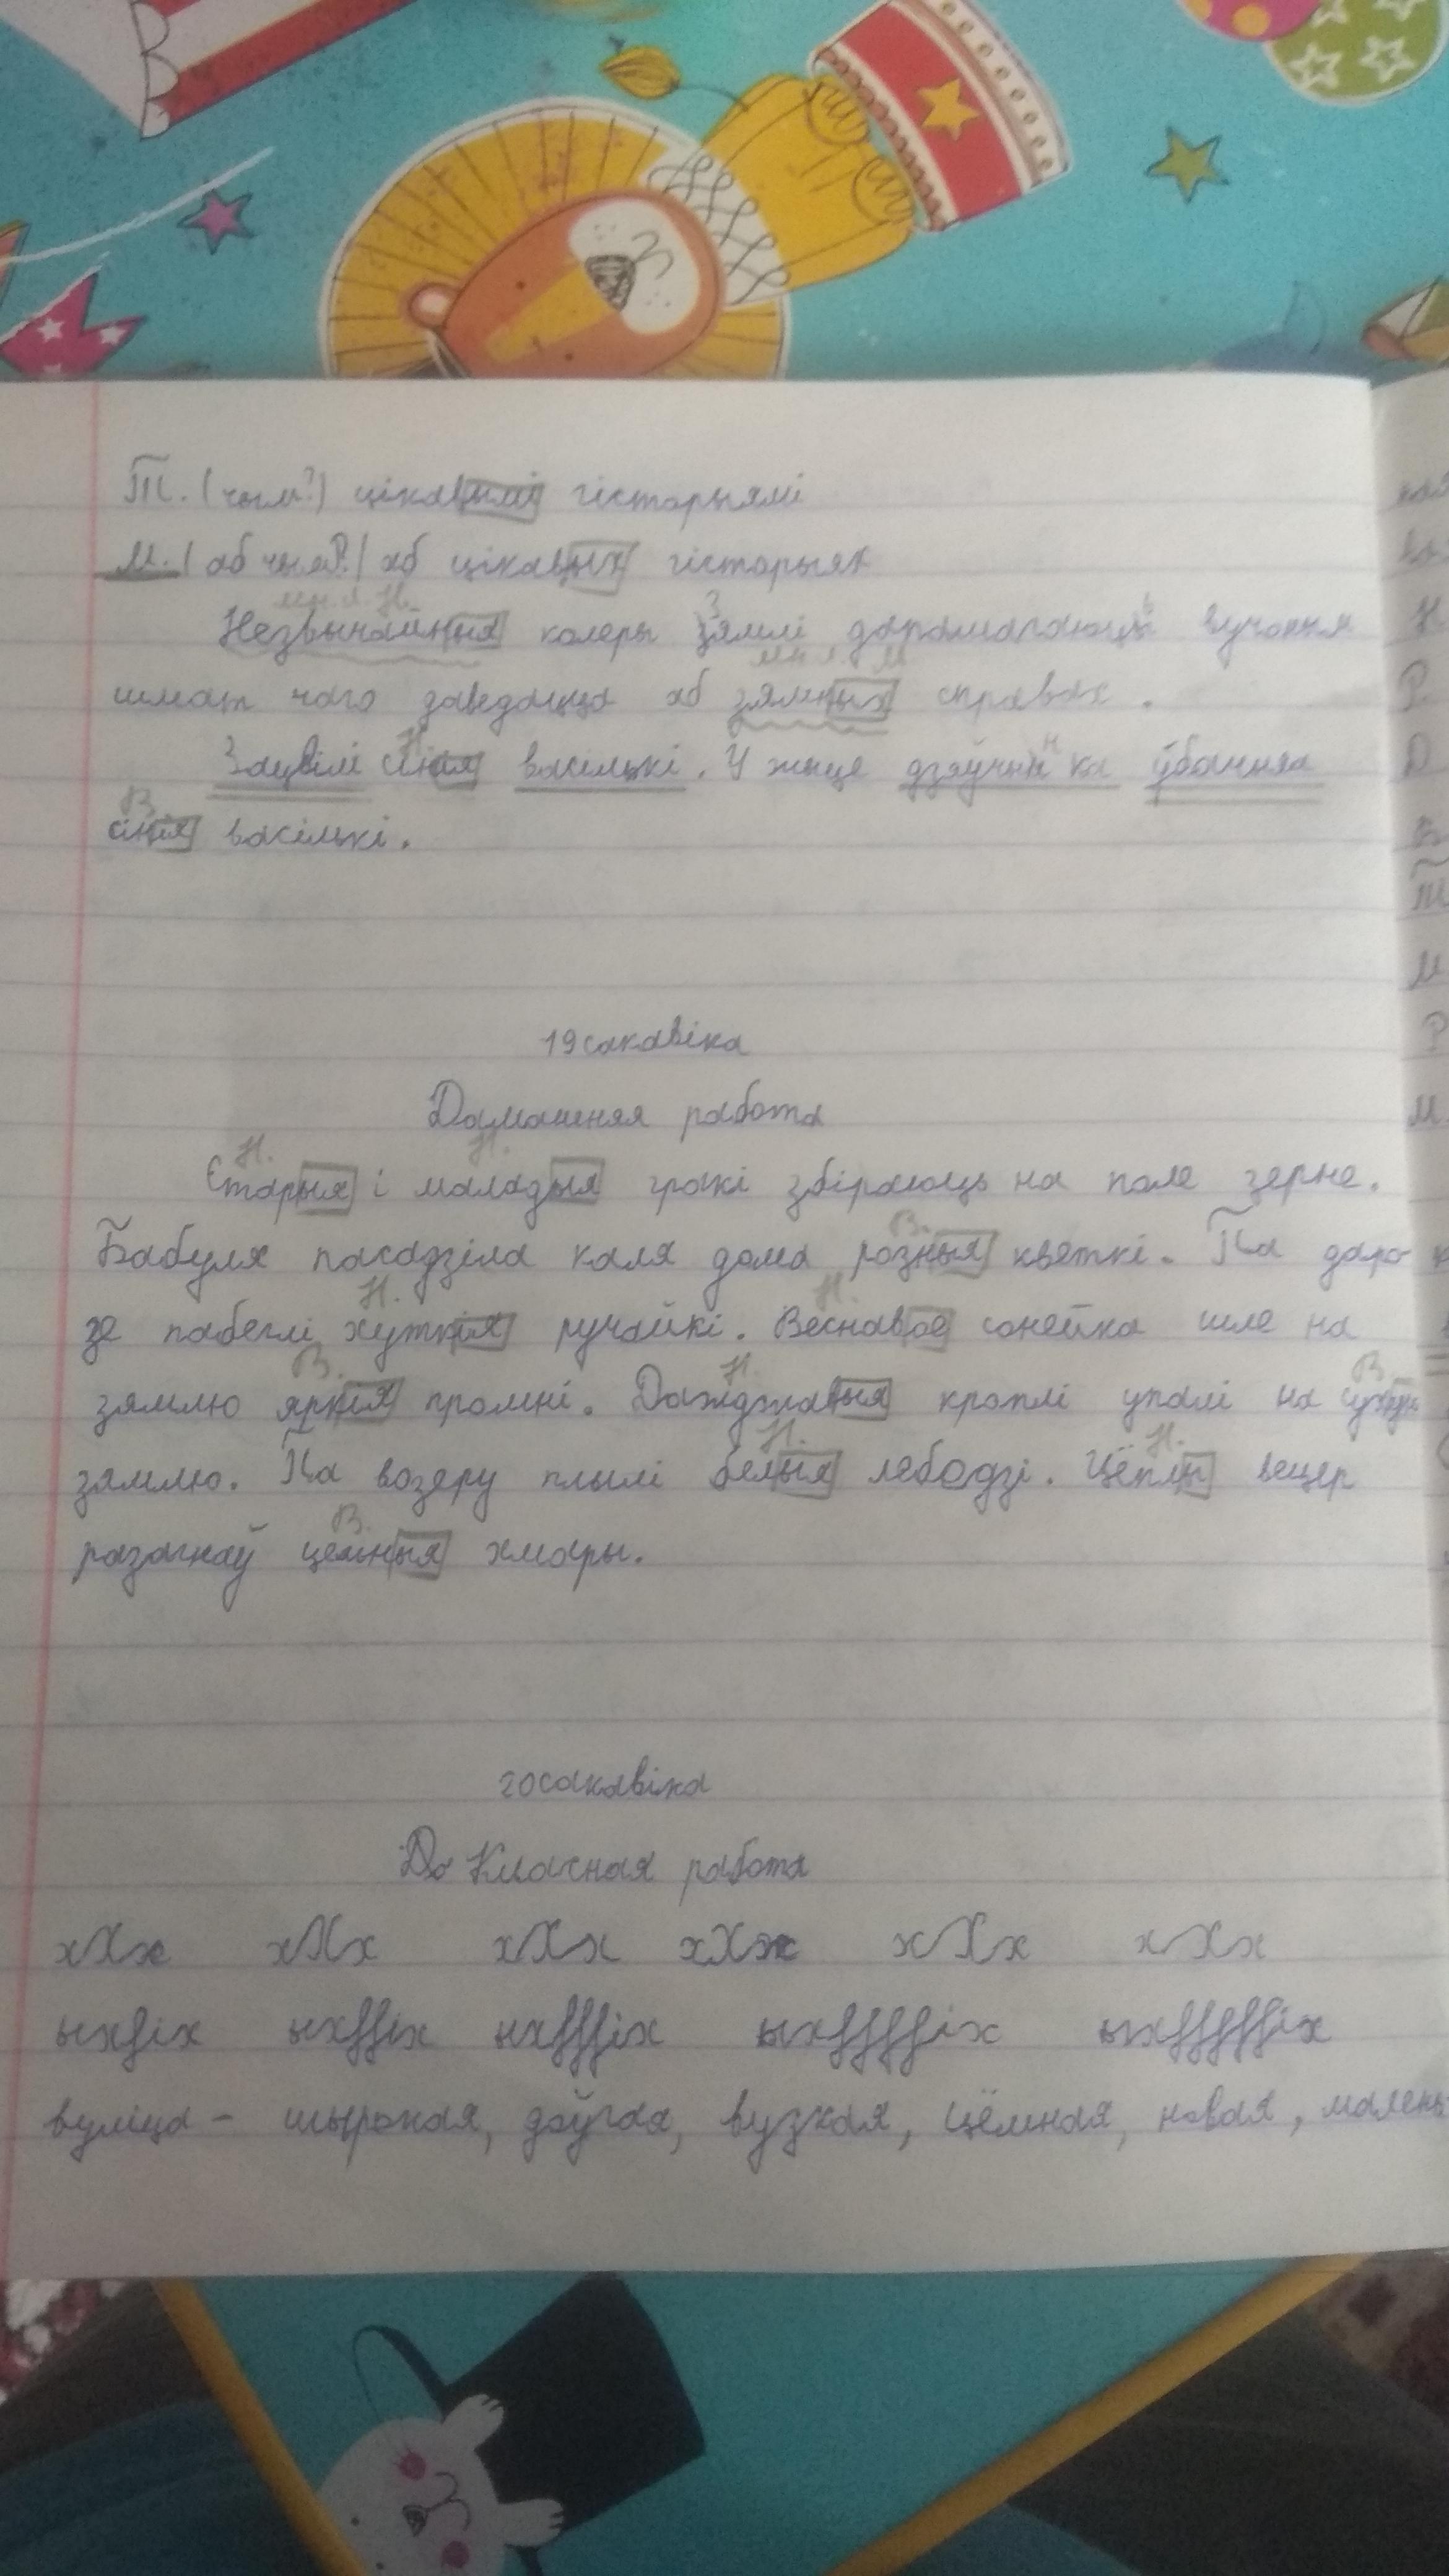 Т. (чым?) цікавымі гісторыямі
М. (аб чым?) аб цікавых гісторыях
мн. л. Н.
Незвычайныя колеры зямлі дапамагаюць вучоным
мн. л. М
шмат чаго даведацца аб зямных справах.
Зацвілі сінія васількі. У жыце дзяўчынка ўбачыла
В.
сінія васількі.
19 сакавіка
Дамашняя работа
Н. Н.
Старыя і маладыя гракі збіраюць на поле зерне.
В.
Бабуля пасадзіла каля дома розныя кветкі. Па даро
Н. Н.
зе пабеглі хуткія ручайкі. Веснавое сонейка шле на
В. Н. В
зямлю яркія промні. Дажджавыя кроплі упалі на сухую
Н. Н.
зямлю. Па возеру плылі белыя лебедзі. Цёплы вецер
В.
разагнаў цёмныя хмары.
20 сакавіка
До Класная работа
хХх хХх хХх хХх хХх хХх
вуліца - шырокая, доўгая, вузкая, цёмная, новая, малень